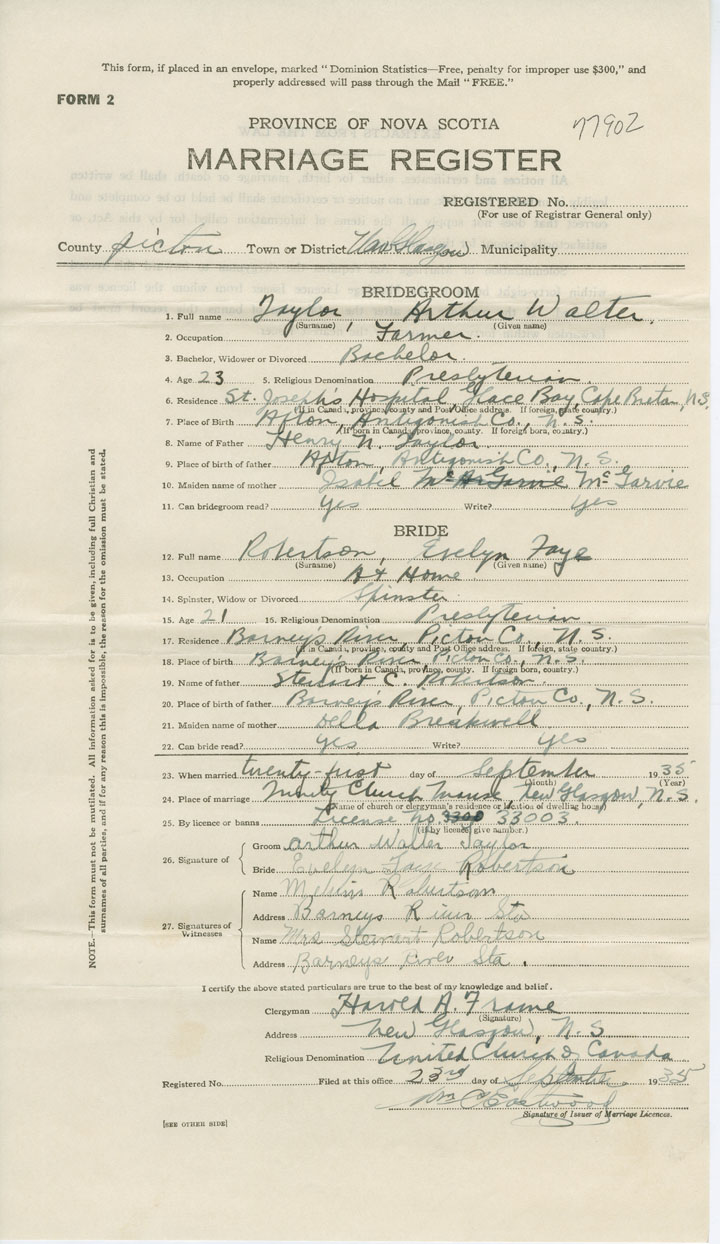 This form, if placed in an envelope, marked "Dominion Statistics—Free, penalty for improper use $300," and
properly addressed will pass through the Mail "FREE."
FORM 2
PROVINCE OF NOVA SCOTIA
77902
MARRIAGE REGISTER
REGISTERED No.
(For use of Registrar General only)
County Picton Town or District New Glasgow Municipality
BRIDEGROOM
1. Full name Taylor, Arthur Walter.
(Surname) (Given name)
2. Occupation Farmer.
3. Bachelor, Widower or Divorced Bachelor.
4. Age 23 5. Religious Denomination Presbyterian.
6. Residence St. Joseph's Hospital, Glace Bay, Cape Breton, N.S.
(If in Canada, province, county and Post Office address. If foreign, state country.)
7. Place of Birth Afton, Antigonish Co., N.S.
(If born in Canada, province, county. If foreign born, country.)
8. Name of Father Henry N. Taylor
9. Place of birth of father Afton, Antigonish Co., N.S.
10. Maiden name of mother Isabel Mc Garvie
11. Can bridegroom read? Yes Write? Yes
BRIDE
12. Full name Robertson, Evelyn Faye
(Surname) (Given name)
13. Occupation At Home
14. Spinster, Widow or Divorced Spinster
15. Age 21 15. Religious Denomination Presbyterian
17. Residence Barney's River, Picton Co., N.S.
(If in Canada, province, county and Post Office address. If foreign, state country.)
18. Place of birth Barney's River, Picton Co., N.S.
(If born in Canada, province, county. If foreign born, country.)
19. Name of father Stewart C. Robertson
20. Place of birth of father Barney's River, Picton Co., N.S.
21. Maiden name of mother Della Breakwell
22. Can bride read? Yes Write? Yes
23. When married twenty-first day of September 1935
(Month) (Year)
24. Place of marriage Trinity Church Manse, New Glasgow, N.S.
(Name of church or clergyman's residence or location of dwelling house)
25. By licence or banns License no. 3300 33003.
(If by licence, give number.)
26. Signature of Groom Arthur Walter Taylor
Bride Evelyn Faye Robertson
27. Signatures of Witnesses
Name Melvin Robertson
Address Barneys River Sta
Name Mrs Stewart Robertson
Address Barneys River Sta.
NOTE.—This form must not be mutilated. All information asked for is to be given, including full Christian and
surnames of all parties, and if for any reason this is impossible, the reason for the omission must be stated.
I certify the above stated particulars are true to the best of my knowledge and belief.
Clergyman Harold A. Frame
(Signature)
Address New Glasgow, N.S
Religious Denomination United Church of Canada
Registered No. Filed at this office 23rd day of September 1935
Wm C Eastwood
Signature of Issuer of Marriage Licences.
[SEE OTHER SIDE]